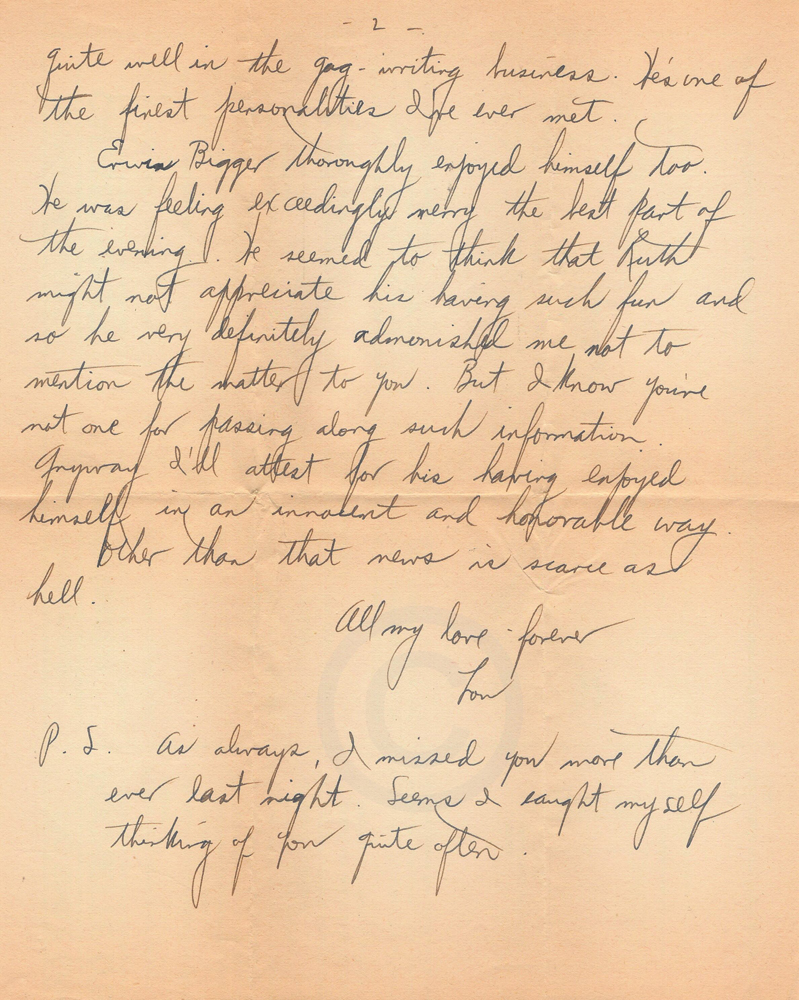 - 2 -
quite well in the gag-writing business. He's one of
the finest personalities I've ever met.
Erwin Bigger thoroughly enjoyed himself too.
He was feeling exceedingly merry the best part of
the evening. He seemed to think that Ruth
might not appreciate his having such fun and
so he very definitely admonished me not to
mention the matter to you. But I know you're
not one for passing along such information.
Anyway I'll attest for his having enjoyed
himself in an innocent and honorable way.
Other than that news is scarce as
hell.
All my love forever
Lou
P. S. As always, I missed you more than
ever last night. Seems I caught myself
thinking of you quite often.